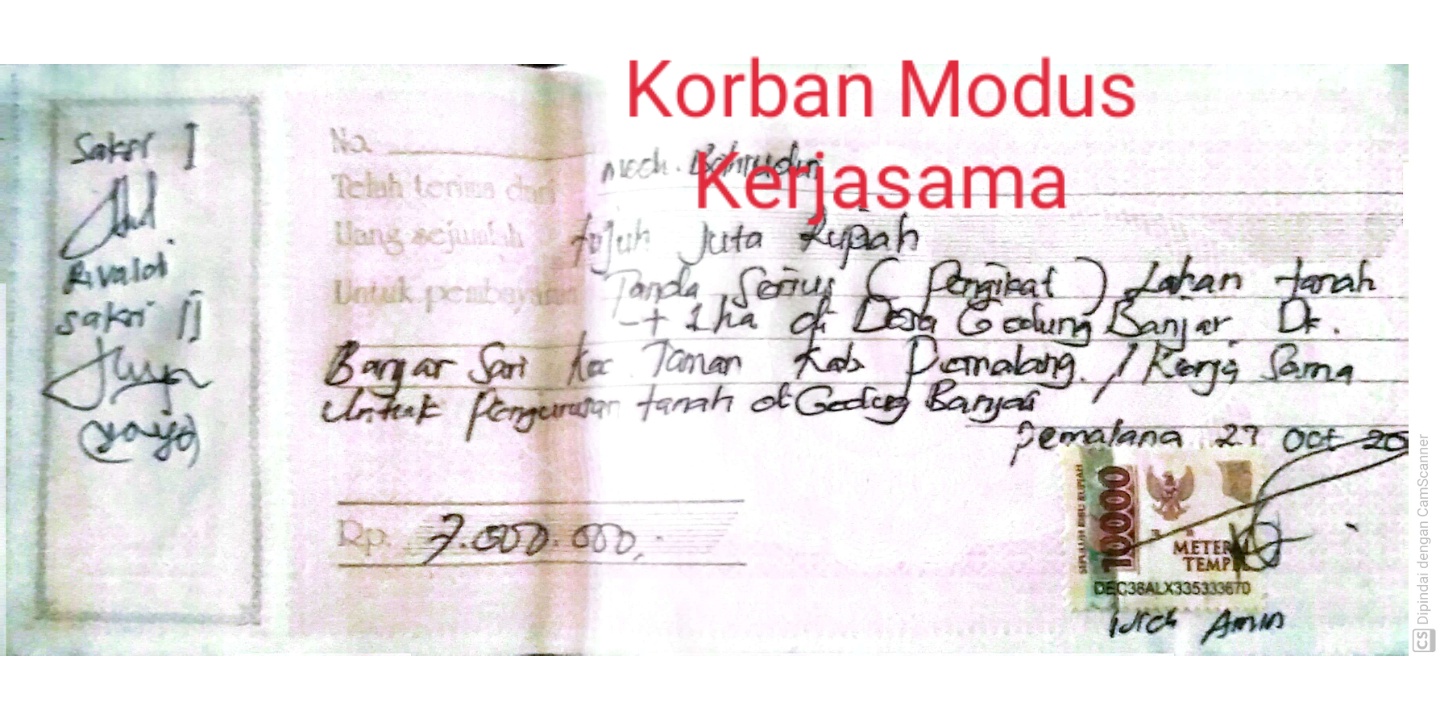 Korban Modus
Kerjasama
Saksi I
Rivaldi
saksi II
No.
Telah terima dari Moch.
Uang sejumlah tujuh Juta Rupiah
Untuk pembayaran Tanda Serius ( Pengikat ) Lahan tanah
-+ 1 ha di Desa Gedung Banjar Dk.
Banjar Sari Kec Taman Kab Pemalang. / Kerja Sama
Untuk Pengurusan tanah di Gedung Banjar
Pemalang 27 Oct 20
Rp. 7.000.000,-
SEPULUH RIBU RUPIAH
10000
METERAI
TEMPEL
DEC38ALX335333670
Moch Amin
CS Dipindai dengan CamScanner